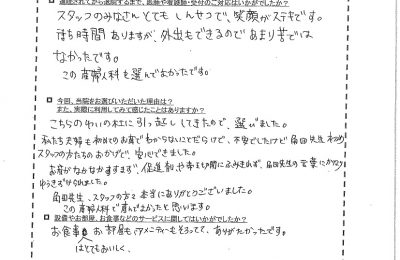 □ 通院されてから退院するまで、医師や看護師・受付のご対応はいかがでしたか?
スタッフのみなさんとても しんせつで、笑顔がステキです。
待ち時間 ありますが、外出もできるので あまり苦では
なかったです。
この産婦人科を選んでよかったです。
□ 今回、当院をお選びいただいた理由は?
また、実際に利用してみて感じたことはありますか?
こちらの 引っ越ししてきたので、選びました。
私たち夫婦も初めてのお産でわからないことだらけで、不安でしたけど 先生
スタッフの方たちのおかげで、安心できました。
お産がなかなかすすまず、促進剤や帝王切開にふみきれず、 先生の言葉に
ゆうきずけられました。
先生、スタッフの方々 本当にありがとうございました。
この産婦人科で産んでよかったと思います。
□ 設備やお部屋、お食事などのサービスに関してはいかがでしたか?
お食事 お部屋も アメニティーもそろってて、ありがたかったです。
はとてもおいしく、